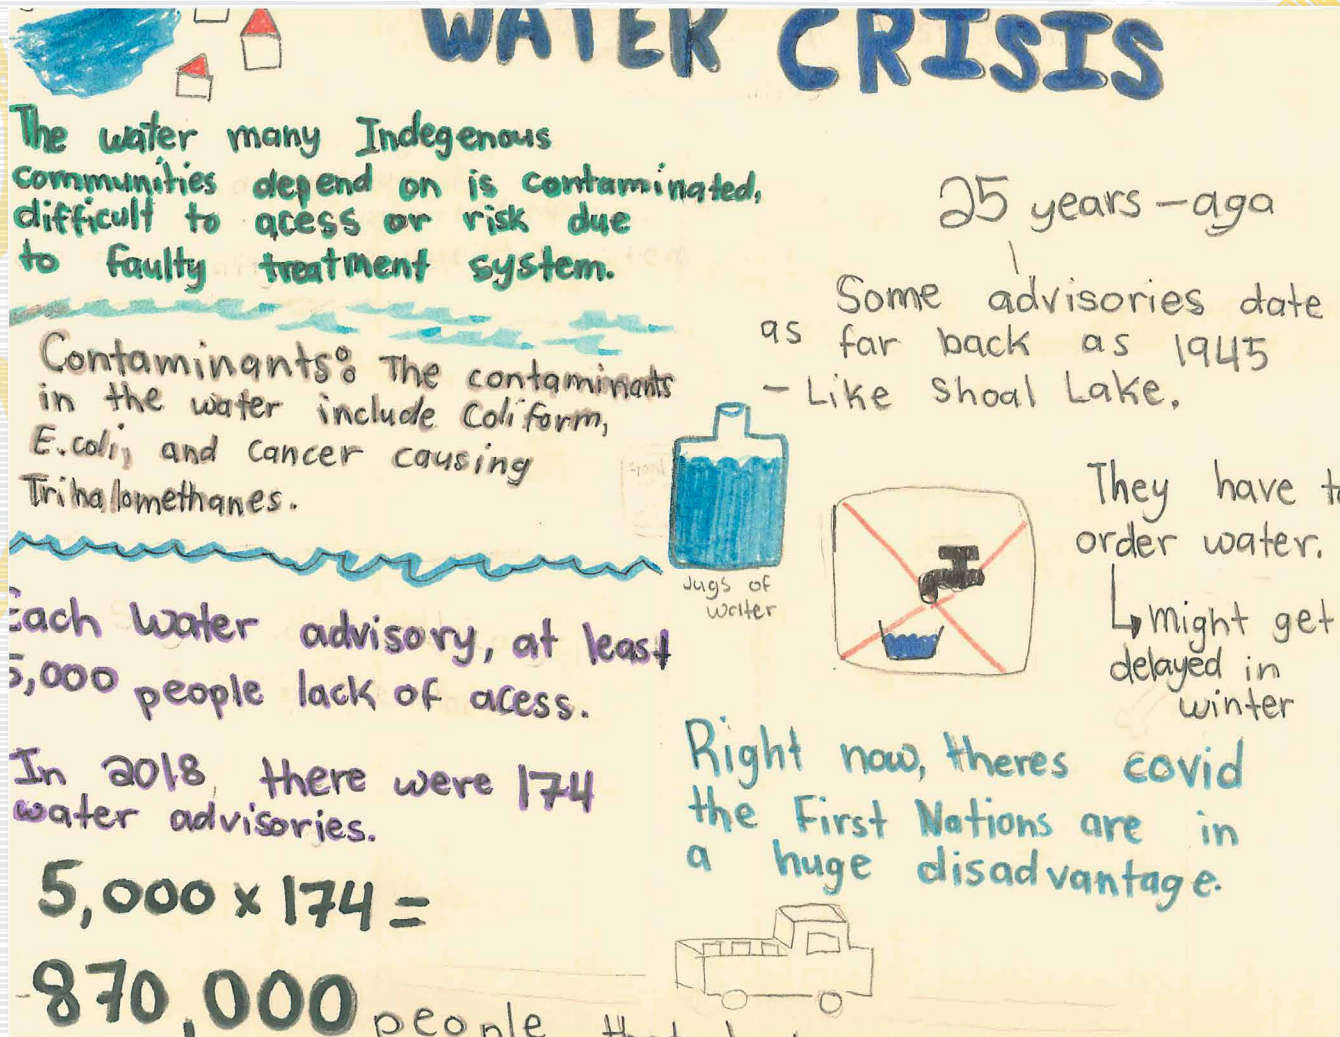 WATER CRISIS
The water many Indegenous
communities depend on is contaminated,
difficult to acess or risk due
to faulty treatment system.
Contaminants: The contaminants
in the water include Coliform,
E.coli, and cancer causing
Trihalomethanes.
Jugs of
water
Each water advisory, at least
5,000 people lack of acess.
In 2018, there were 174
water advisories.
5,000 x 174 =
870,000 people
25 years - aga
Some advisories date
as far back as 1945
- Like Shoal Lake.
They have to
order water.
might get
delayed in
winter
Right now, theres covid
the First Nations are in
a huge disadvantage.